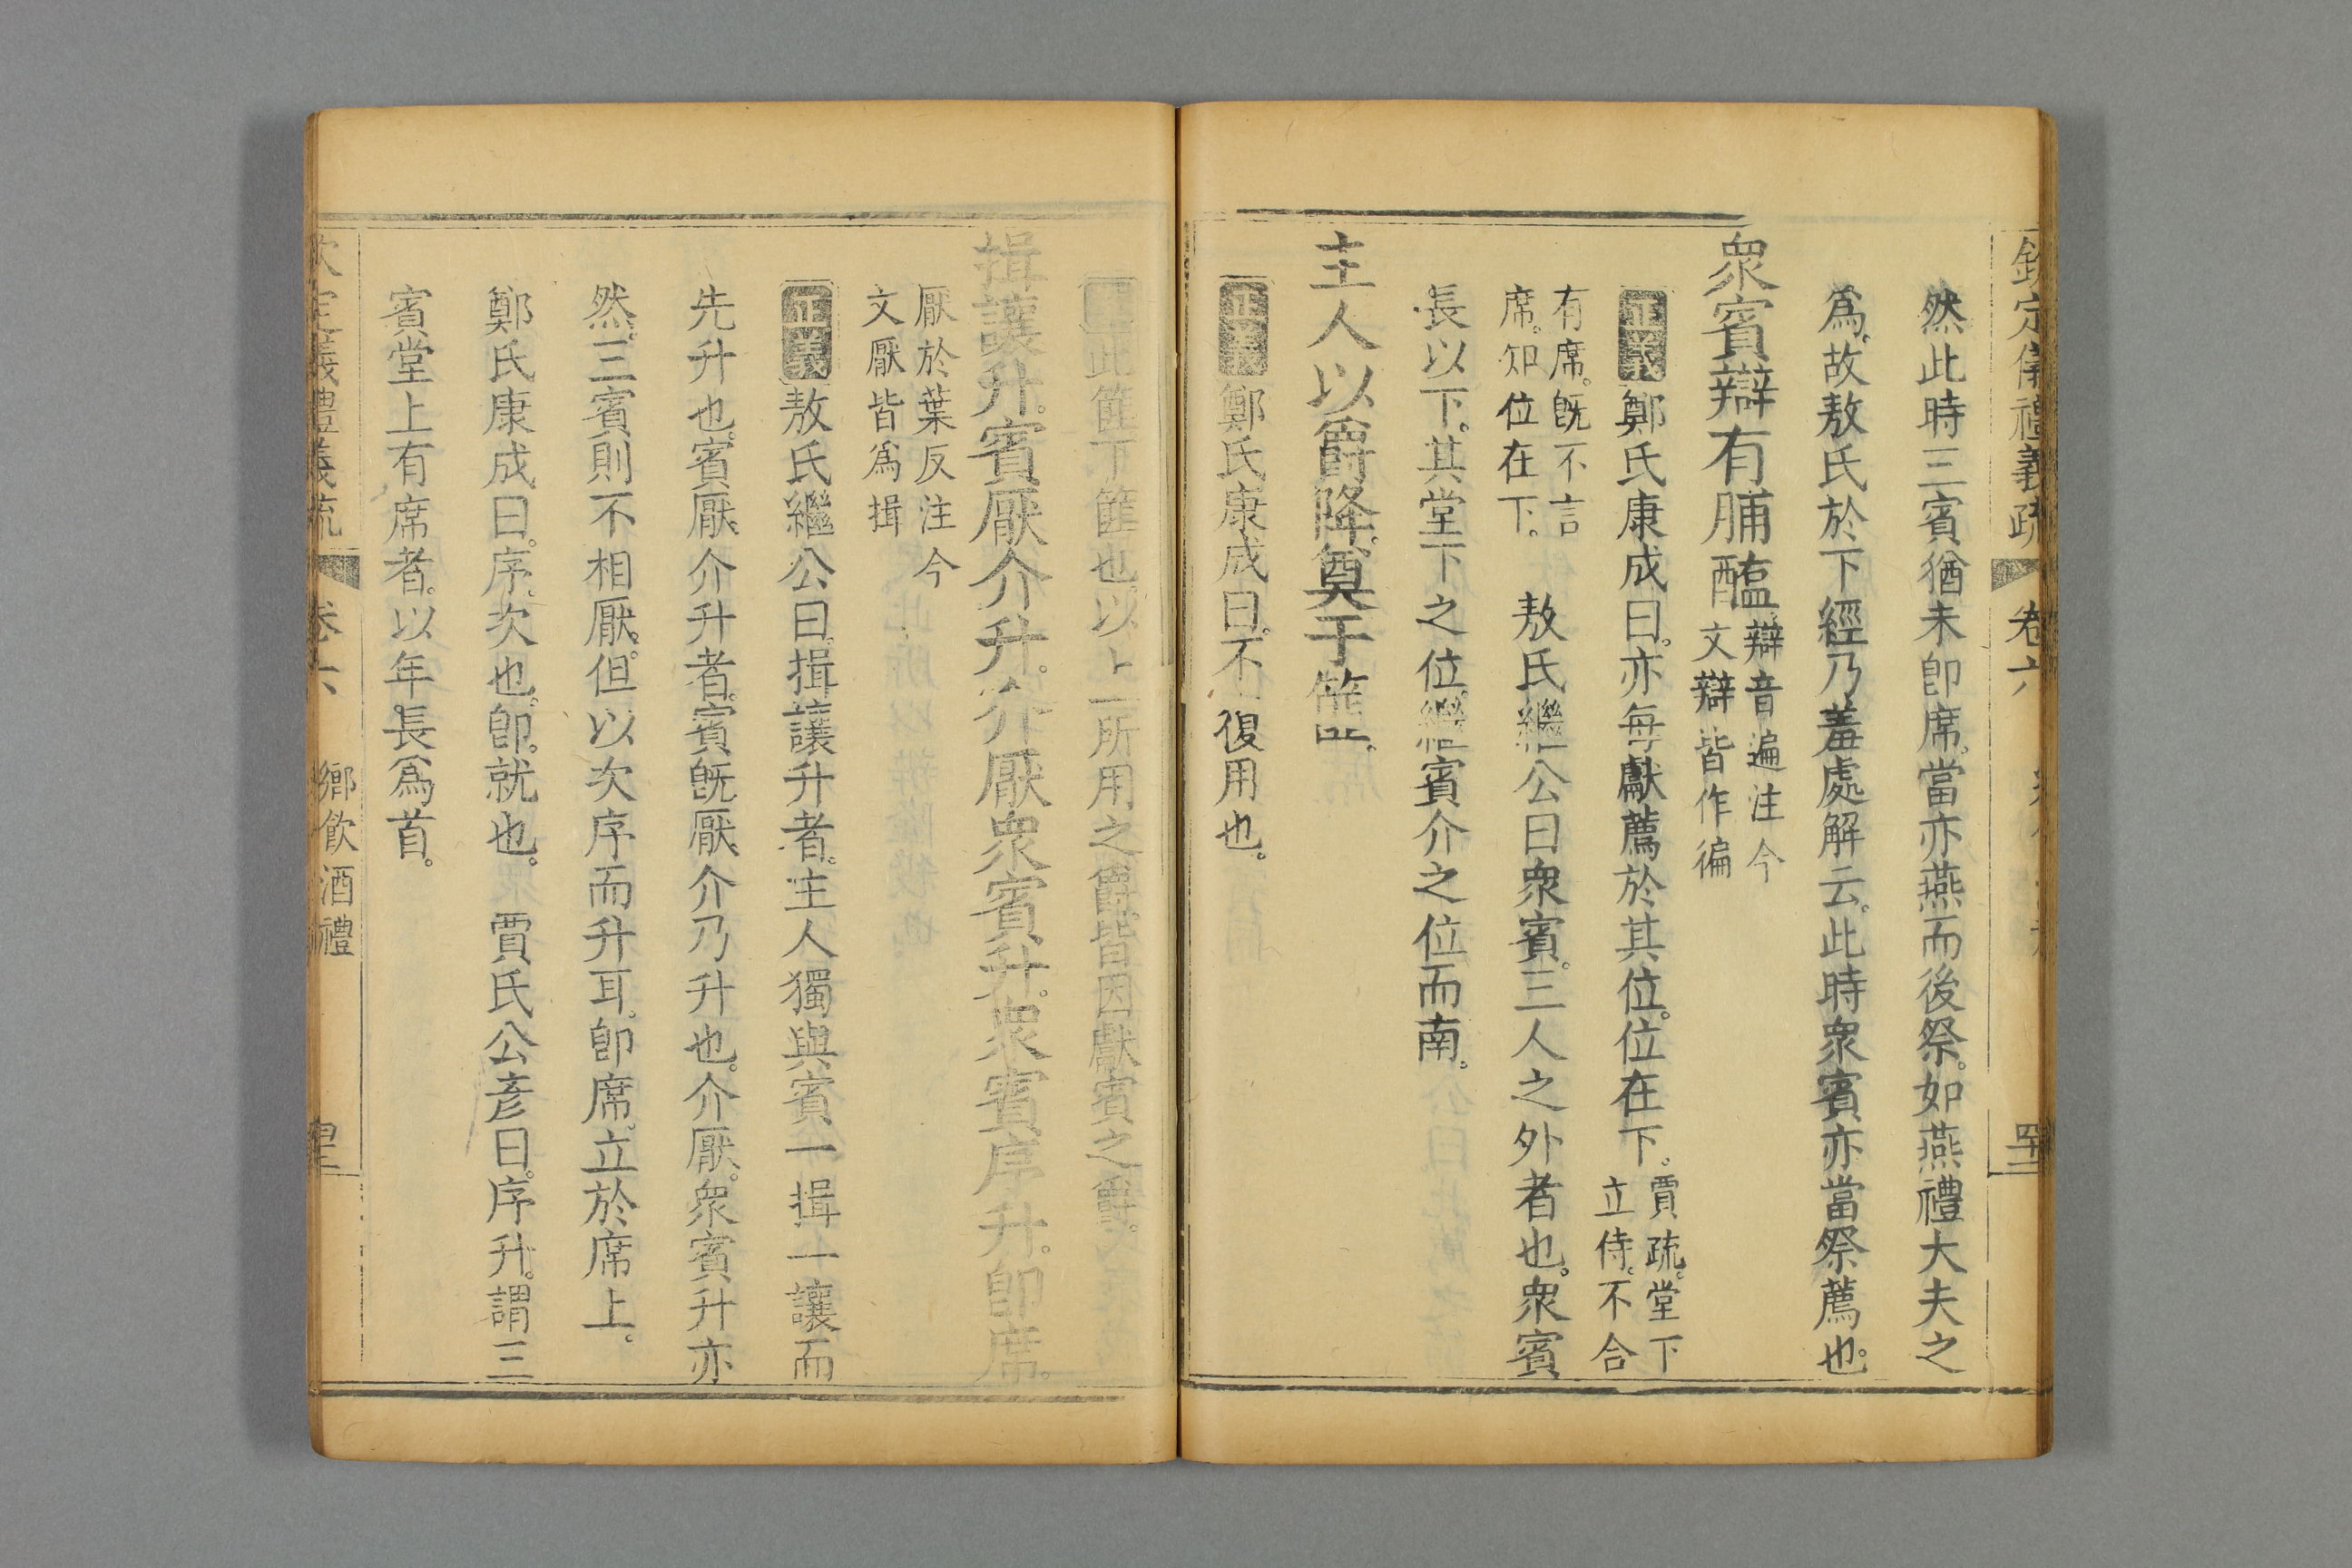 欽定儀禮義疏 卷六
然此時三賓猶未卽席當亦燕而後祭如燕禮大夫之
爲故敖氏於下經乃羞處解云此時衆賓亦當祭薦也
衆賓辯有脯醢辯音遍注今
文辯皆作徧
正義鄭氏康成曰亦每獻薦於其位位在下賈疏堂下
立侍不合
有席旣不言
席知位在下 敖氏繼公曰衆賓三人之外者也衆賓
長以下其堂下之位繼賓介之位而南
主人以爵降奠于篚
正義鄭氏康成曰不復用也
此篚下篚也以上所用之爵皆因獻賓之爵
揖讓升賓厭介升介厭衆賓升衆賓序升卽席
厭於葉反注今
文厭皆爲揖
正義敖氏繼公曰揖讓升者主人獨與賓一揖一讓而
先升也賓厭介升者賓旣厭介乃升也介厭衆賓升亦
然三賓則不相厭但以次序而升耳卽席立於席上
鄭氏康成曰序次也卽就也 賈氏公彥曰序升謂三
賓堂上有席者以年長爲首
欽定義禮義疏 卷六 鄉飲酒禮